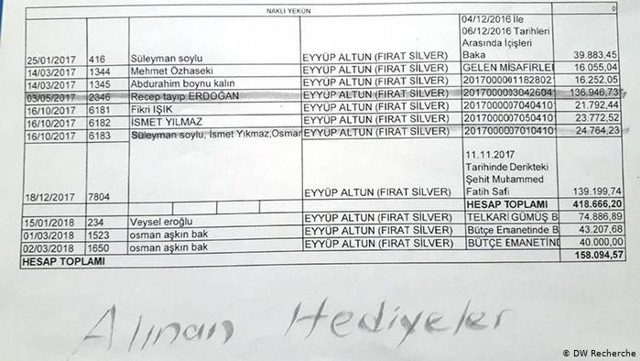 NAKLİ YEKÜN 0
04/12/2016 İle
06/12/2016 Tarihleri
Arasında İçişleri
25/01/2017 416 Süleyman soylu EYYÜP ALTUN (FIRAT SİLVER) Baka 39.883,45
14/03/2017 1344 Mehmet Özhaseki EYYÜP ALTUN (FIRAT SİLVER) GELEN MİSAFİRLEI 16.055,04
14/03/2017 1345 Abdurahim boynu kalın EYYÜP ALTUN (FIRAT SİLVER) 2017000001182802 16.252,05
03/05/2017 2346 Recep tayıp ERDOĞAN EYYÜP ALTUN (FIRAT SİLVER) 2017000003042604 136.946,73
16/10/2017 6181 Fikri IŞIK EYYÜP ALTUN (FIRAT SİLVER) 2017000007040410 21.792,44
16/10/2017 6182 İSMET YILMAZ EYYÜP ALTUN (FIRAT SİLVER) 2017000007050410 23.772,52
16/10/2017 6183 Süleyman soylu, İsmet Yıkmaz,Osmar EYYÜP ALTUN (FIRAT SİLVER) 2017000007010410 24.764,23
11.11.2017
Tarihinde Derikteki
Şehit Muhammed
18/12/2017 7804 EYYÜP ALTUN (FIRAT SİLVER) Fatih Safi 139.199,74
HESAP TOPLAMI 418.666,20
15/01/2018 234 Veysel eroğlu EYYÜP ALTUN (FIRAT SİLVER) TELKARİ GÜMÜŞ B 74.886,89
01/03/2018 1523 osman aşkın bak EYYÜP ALTUN (FIRAT SİLVER) Bütçe Emanetinde B 43.207,68
02/03/2018 1650 osman aşkın bak EYYÜP ALTUN (FIRAT SİLVER) BÜTÇE EMANETİNI 40.000,00
HESAP TOPLAMI 158.094,57
Alınan Hediyeler
© DW Recherche